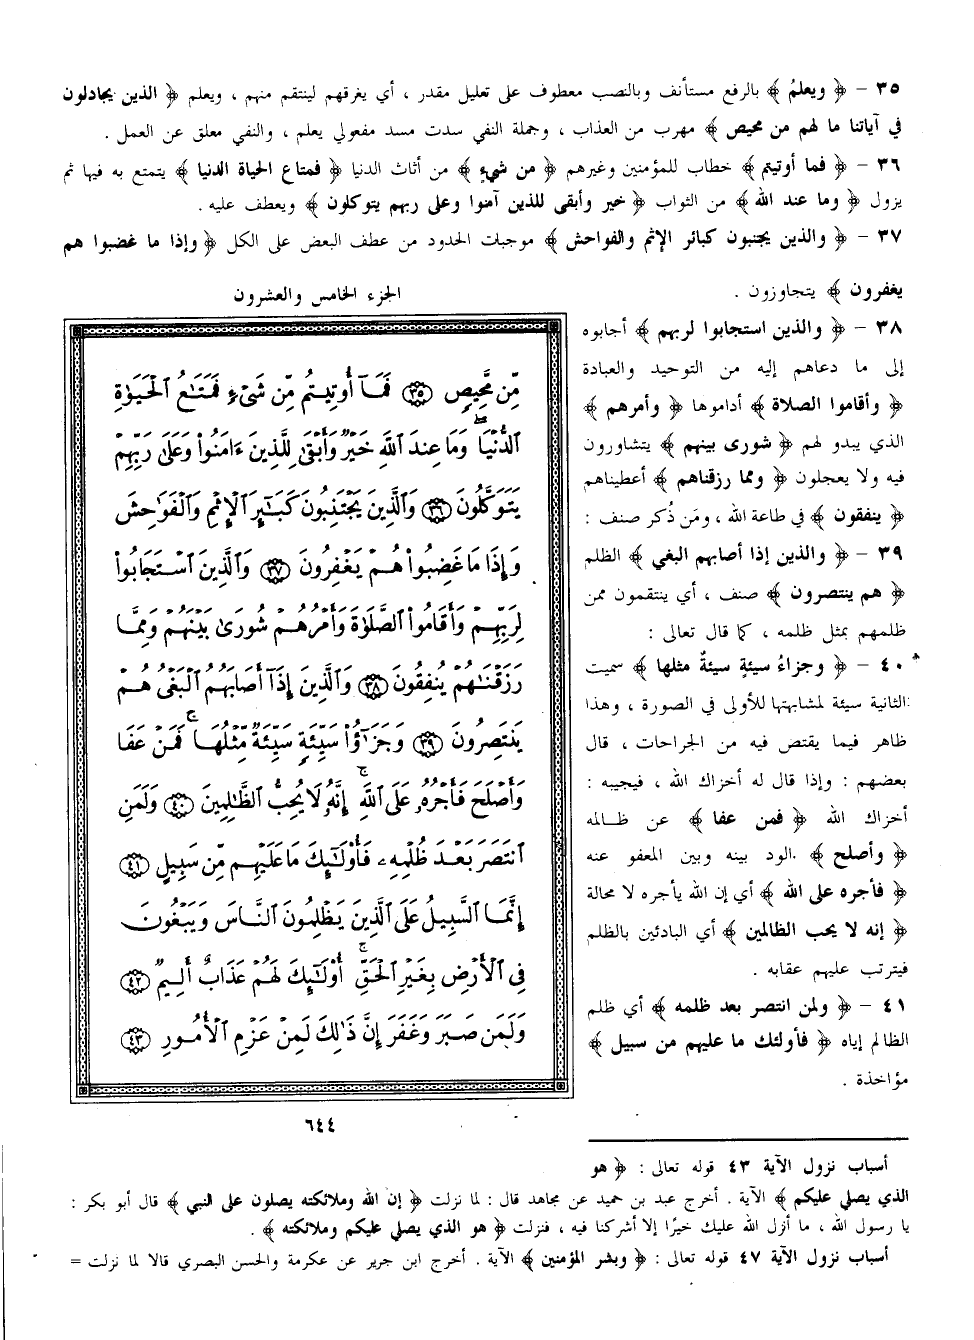 ٣٥ - ﴿ ويعلمُ ﴾ بالرفع مستأنف وبالنصب معطوف على تعليل مقدر ، أي يغرقهم لينتقم منهم ، ويعلم ﴿ الذين يجادلون
في آياتنا ما لهم من محيص ﴾ مهرب من العذاب ، وجملة النفي سدت مسد مفعولي يعلم ، والنفي معلق عن العمل .
٣٦ - ﴿ فما أوتيتم ﴾ خطاب للمؤمنين وغيرهم ﴿ من شيءٍ ﴾ من أثاث الدنيا ﴿ فمتاع الحياة الدنيا ﴾ يتمتع به فيها ثم
يزول ﴿ وما عند الله ﴾ من الثواب ﴿ خير وأبقى للذين آمنوا وعلى ربهم يتوكلون ﴾ ويعطف عليه .
٣٧ - ﴿ والذين يجتنبون كبائر الإثم والفواحش ﴾ موجبات الحدود من عطف البعض على الكل ﴿ وإذا ما غضبوا هم
يغفرون ﴾ يتجاوزون .
٣٨ - ﴿ والذين استجابوا لربهم ﴾ أجابوه
إلى ما دعاهم إليه من التوحيد والعبادة
﴿ وأقاموا الصلاة ﴾ أداموها ﴿ وأمرهم ﴾
الذي يبدو لهم ﴿ شورى بينهم ﴾ يتشاورون
فيه ولا يعجلون ﴿ ومما رزقناهم ﴾ أعطيناهم
﴿ ينفقون ﴾ في طاعة الله ، ومَن ذُكر صنف :
٣٩ - ﴿ والذين إذا أصابهم البغي ﴾ الظلم
﴿ هم ينتصرون ﴾ صنف ، أي ينتقمون ممن
ظلمهم بمثل ظلمه ، كما قال تعالى :
٤٠ - ﴿ وجزاءُ سيئةٍ سيئةٌ مثلها ﴾ سميت
الثانية سيئة لمشابهتها للأولى في الصورة ، وهذا
ظاهر فيما يقتص فيه من الجراحات ، قال
بعضهم : وإذا قال له أخزاك الله ، فيجيبه :
أخزاك الله ﴿ فمن عفا ﴾ عن ظالمه
﴿ وأصلح ﴾ الود بينه وبين المعفو عنه
﴿ فأجره على الله ﴾ أي إن الله يأجره لا محالة
﴿ إنه لا يحب الظالمين ﴾ أي البادئين بالظلم
فيترتب عليهم عقابه .
٤١ - ﴿ ولمن انتصر بعد ظلمه ﴾ أي ظلم
الظالم إياه ﴿ فأولئك ما عليهم من سبيل ﴾
مؤاخذة .
الجزء الخامس والعشرون
مِّن مَّحِيصٍ ٣٥ فَمَآ أُوتِيتُم مِّن شَىْءٍ فَمَتَٰعُ ٱلْحَيَوٰةِ
ٱلدُّنْيَا ۖ وَمَا عِندَ ٱللَّهِ خَيْرٌ وَأَبْقَىٰ لِلَّذِينَ ءَامَنُوا۟ وَعَلَىٰ رَبِّهِمْ
يَتَوَكَّلُونَ ٣٦ وَٱلَّذِينَ يَجْتَنِبُونَ كَبَٰٓئِرَ ٱلْإِثْمِ وَٱلْفَوَٰحِشَ
وَإِذَا مَا غَضِبُوا۟ هُمْ يَغْفِرُونَ ٣٧ وَٱلَّذِينَ ٱسْتَجَابُوا۟
لِرَبِّهِمْ وَأَقَامُوا۟ ٱلصَّلَوٰةَ وَأَمْرُهُمْ شُورَىٰ بَيْنَهُمْ وَمِمَّا
رَزَقْنَٰهُمْ يُنفِقُونَ ٣٨ وَٱلَّذِينَ إِذَآ أَصَابَهُمُ ٱلْبَغْىُ هُمْ
يَنتَصِرُونَ ٣٩ وَجَزَٰٓؤُا۟ سَيِّئَةٍ سَيِّئَةٌ مِّثْلُهَا ۖ فَمَنْ عَفَا
وَأَصْلَحَ فَأَجْرُهُۥ عَلَى ٱللَّهِ ۚ إِنَّهُۥ لَا يُحِبُّ ٱلظَّٰلِمِينَ ٤٠ وَلَمَنِ
ٱنتَصَرَ بَعْدَ ظُلْمِهِۦ فَأُو۟لَٰٓئِكَ مَا عَلَيْهِم مِّن سَبِيلٍ ٤١
إِنَّمَا ٱلسَّبِيلُ عَلَى ٱلَّذِينَ يَظْلِمُونَ ٱلنَّاسَ وَيَبْغُونَ
فِى ٱلْأَرْضِ بِغَيْرِ ٱلْحَقِّ ۚ أُو۟لَٰٓئِكَ لَهُمْ عَذَابٌ أَلِيمٌ ٤٢
وَلَمَن صَبَرَ وَغَفَرَ إِنَّ ذَٰلِكَ لَمِنْ عَزْمِ ٱلْأُمُورِ ٤٣
٦٤٤
أسباب نزول الآية ٤٣ قوله تعالى : ﴿ هو
الذي يصلي عليكم ﴾ الآية . أخرج عبد بن حميد عن مجاهد قال : لما نزلت ﴿ إن الله وملائكته يصلون على النبي ﴾ قال أبو بكر :
يا رسول الله ، ما أنزل الله عليك خيرًا إلا أشركنا فيه ، فنزلت ﴿ هو الذي يصلي عليكم وملائكته ﴾ .
أسباب نزول الآية ٤٧ قوله تعالى : ﴿ وبشر المؤمنين ﴾ الآية . أخرج ابن جرير عن عكرمة والحسن البصري قالا لما نزلت =